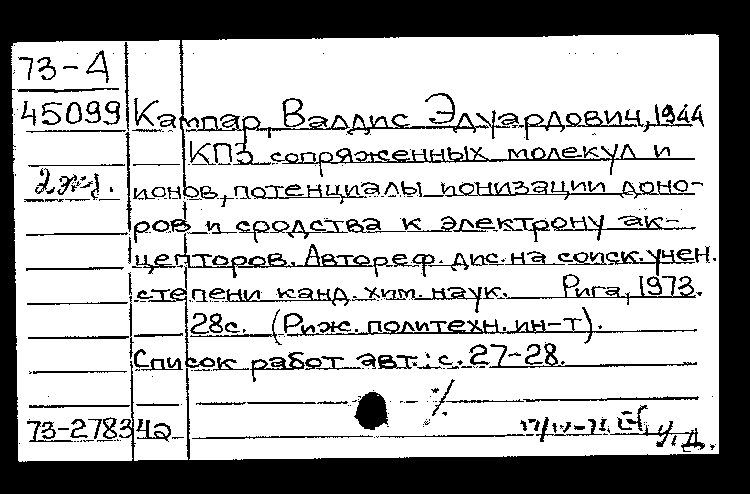 73-А
45099 Кампар, Валдис Эдуардович, 1944
КПЗ сопряженных молекул и
2 экз. ионов, потенциалы ионизации доно-
ров и сродства к электрону ак-
цепторов. Автореф. дис. на соиск. учен.
степени канд. хим. наук. Рига, 1973.
28с. (Риж. политехн. ин-т).
Список работ авт.: с. 27-28.
73-27834а